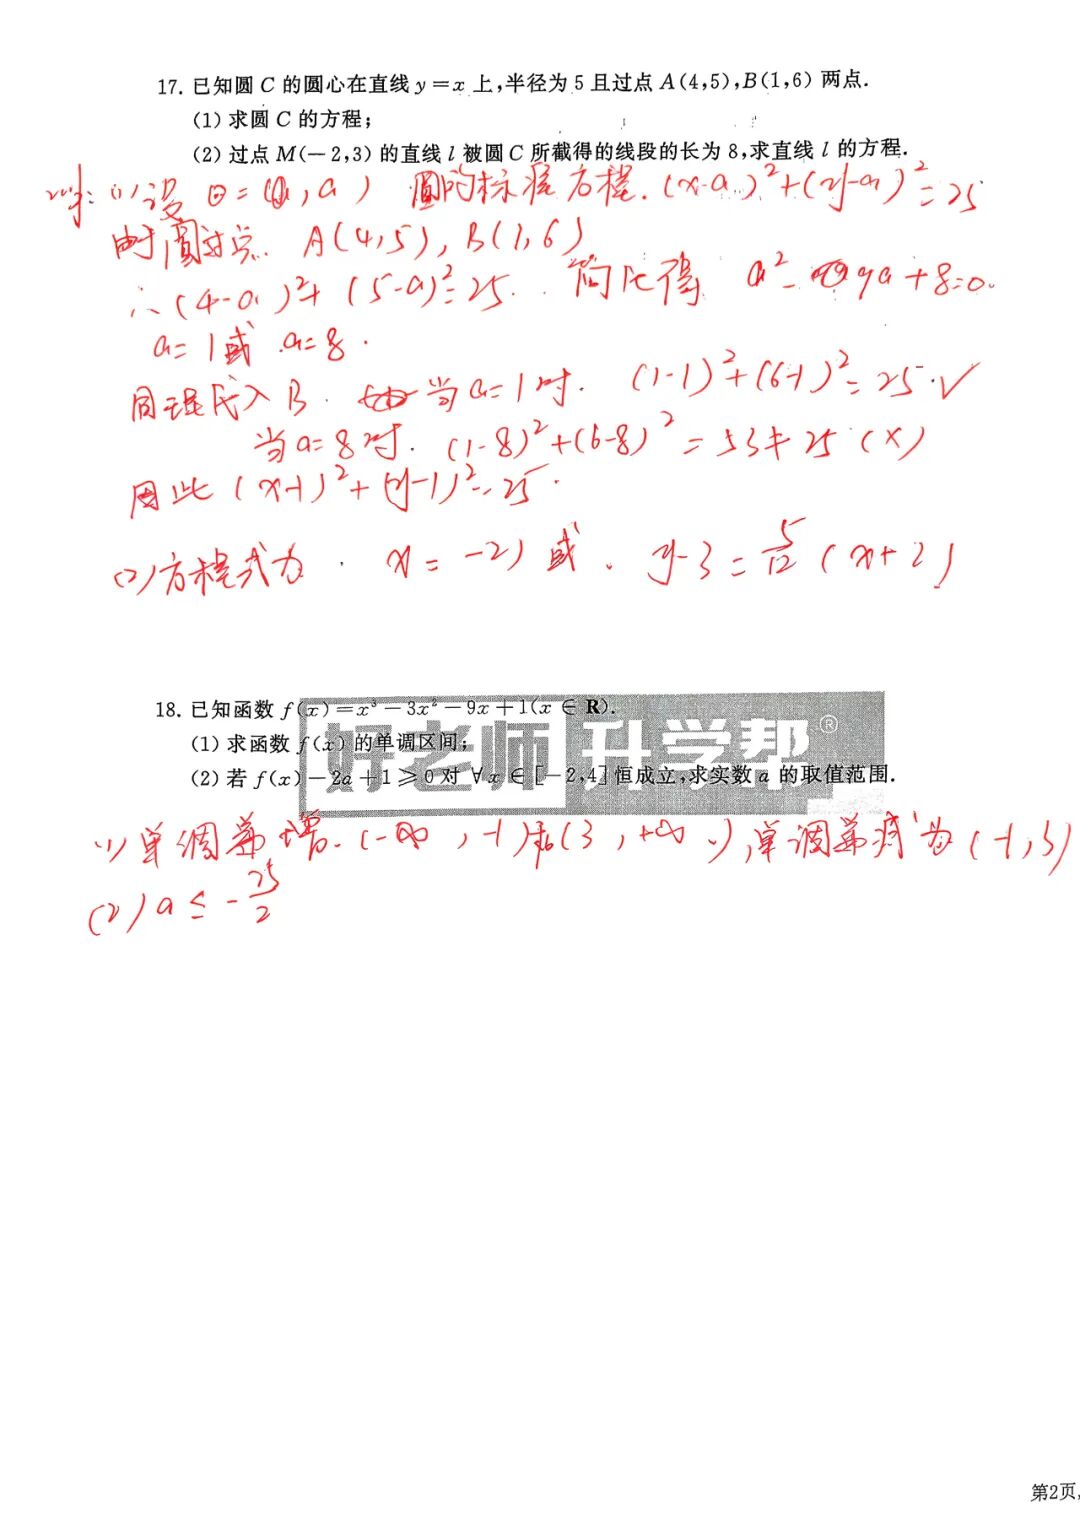 17. 已知圆 C 的圆心在直线 y=x 上,半径为 5 且过点 A(4,5),B(1,6) 两点.
(1) 求圆 C 的方程;
(2) 过点 M(-2,3) 的直线 l 被圆 C 所截得的线段的长为 8,求直线 l 的方程.
(1) 设 = (a, a) 圆的标准方程. (x-a)²+(y-a)²=25
由于圆过点. A(4,5), B(1,6)
∴(4-a)²+(5-a)²=25. 简化得 a²-9a+8=0.
a=1或 a=8.
同理代入 B. 当a=1时. (1-1)²+(6-1)²=25.✓
当a=8时. (1-8)²+(6-8)²=53≠25 (×)
因此 (x-1)²+(y-1)²=25.
(2)方程式为 x=-2) 或 y-3=5/12(x+2)
18. 已知函数 f(x)=x³-3x²-9x+1(x∈R).
(1) 求函数 f(x) 的单调区间;
(2) 若 f(x)-2a+1≥0 对 ∀x∈[-2,4] 恒成立,求实数 a 的取值范围.
好老师 升学帮®
(1) 单调递增.(-∞,-1)和(3,+∞),单调递减为(-1,3)
(2) a≤-25/2
第2页,